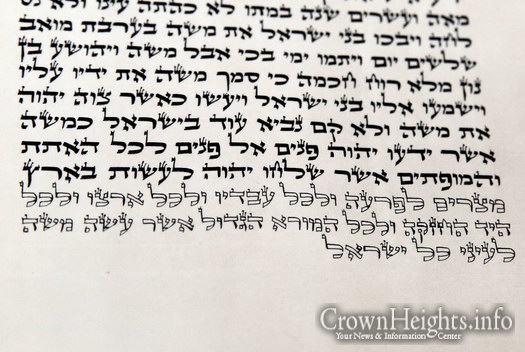 מאה ועשרים שנה במתו לא כהתה עינו ולא נס
לחה ויבכו בני ישראל את משה בערבת מואב
שלשים יום ויתמו ימי בכי אבל משה ויהושע בן
נון מלא רוח חכמה כי סמך משה את ידיו עליו
וישמעו אליו בני ישראל ויעשו כאשר צוה יהוה
את משה ולא קם נביא עוד בישראל כמשה
אשר ידעו יהוה פנים אל פנים לכל האתת
והמופתים אשר שלחו יהוה לעשות בארץ
מצרים לפרעה ולכל עבדיו ולכל ארצו ולכל
היד החזקה ולכל המורא הגדול אשר עשה משה
לעיני כל ישראל
CrownHeights.info
Your News & Information Center